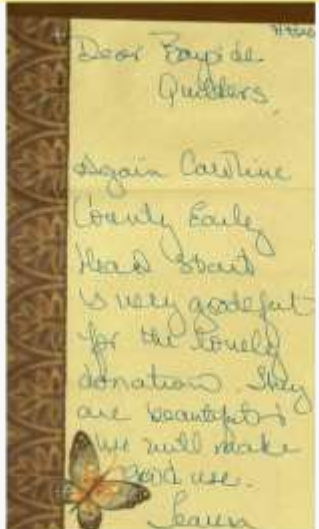 Dear Bayside
Quilters
Again Caroline
County Early
Head Start
is very grateful
for the lovely
donation. They
are beautiful &
we will make
good use.